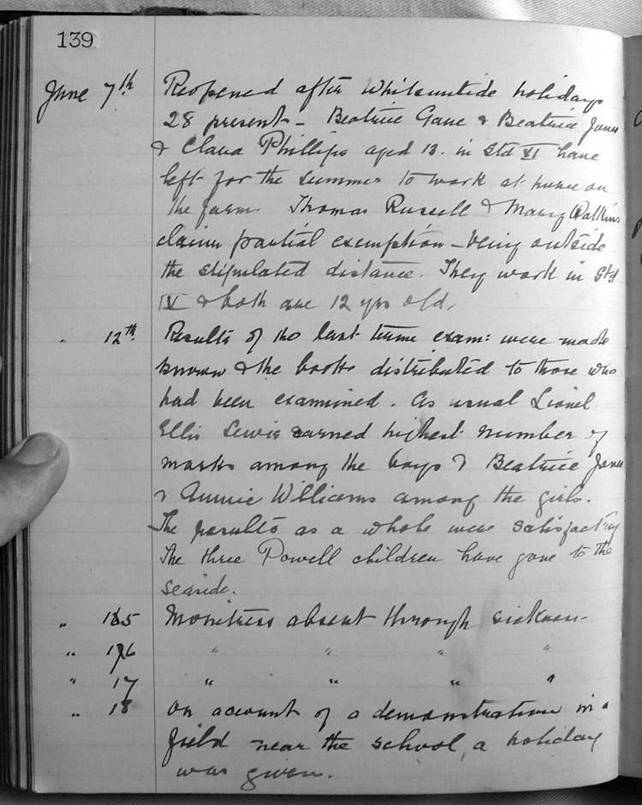 139
June 7th Reopened after Whitsuntide holidays
28 present - Beatrice Gane & Beatrice Jones
& Clara Phillips aged 13. in Std VI have
left for the summer to work at home on
the farm. Thomas Russell & Mary Watkins
claim partial exemption - being outside
the stipulated distance. They work in Std
IV & both are 12 yrs old.
" 12th Results of the last term exam: were made
known & the books distributed to those who
had been examined. As usual Lionel
Ellis Lewis earned highest number of
marks among the boys & Beatrice Jones
& Annie Williams among the girls.
The results as a whole were satisfactory
The three Powell children have gone to the
seaside.
" 15 Monitress absent through sickness -
" 16 " " "
" 17 " " " "
" 18 On account of a demonstration in a
field near the school, a holiday
was given.